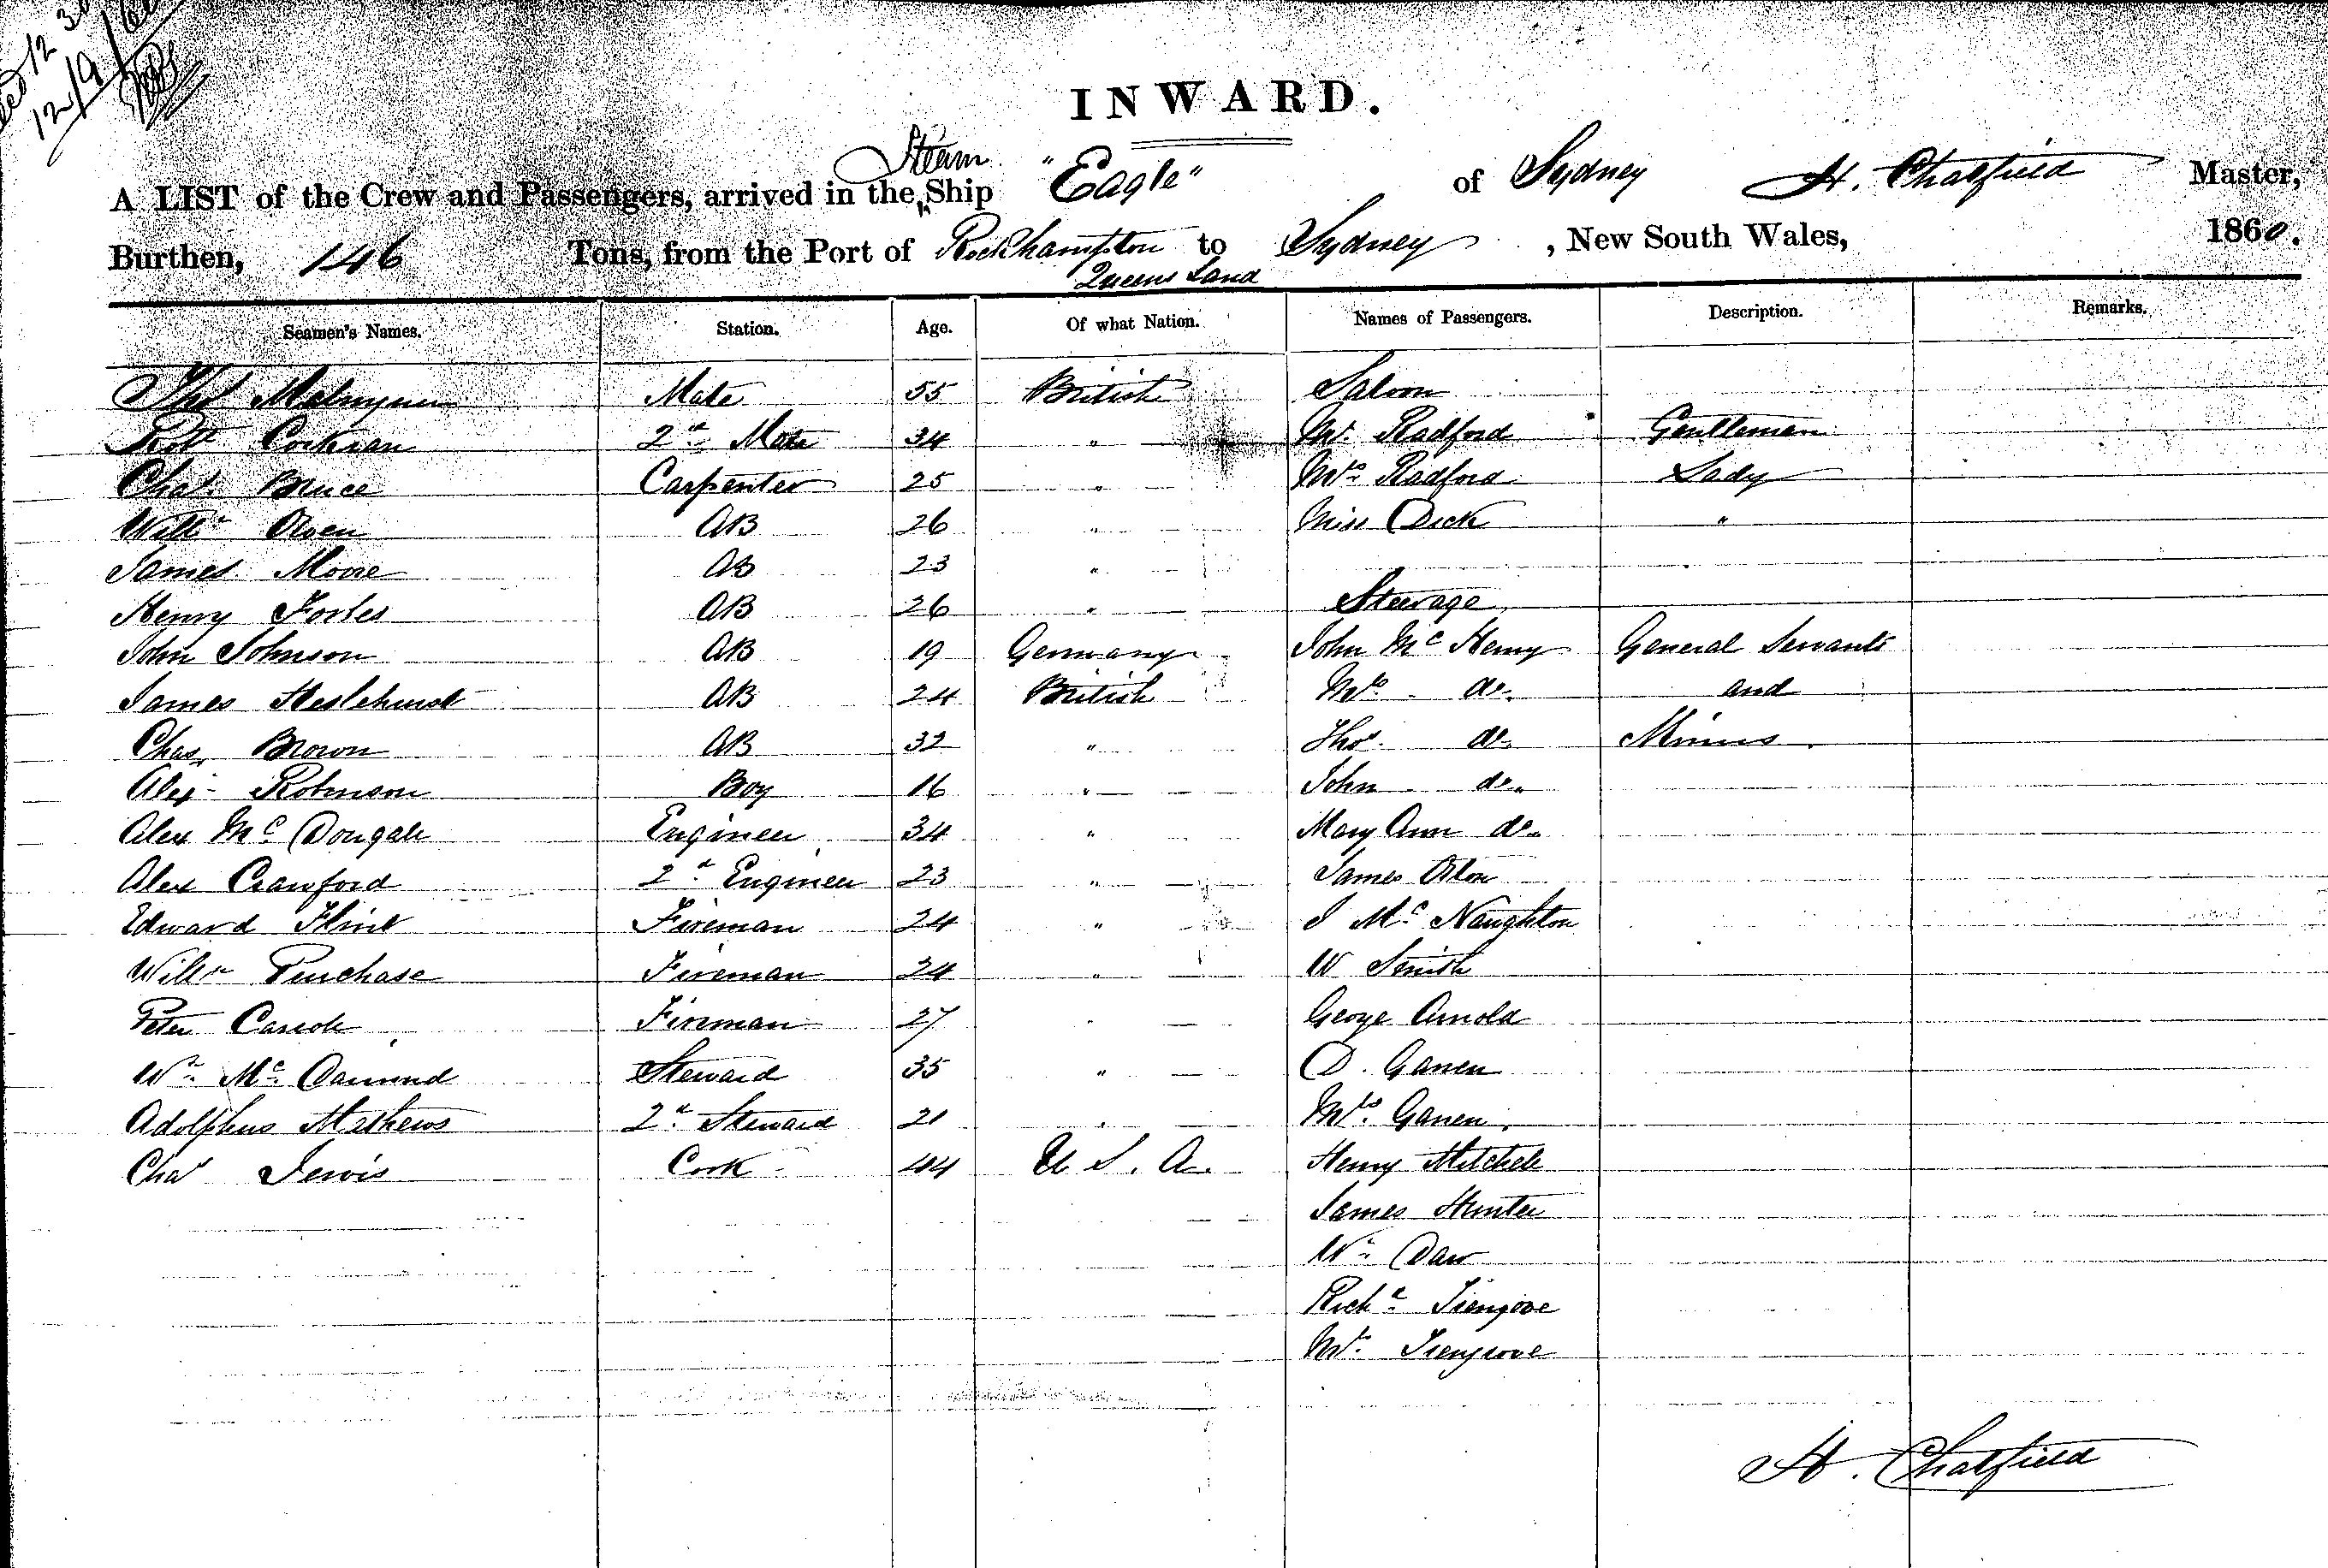 12/9/60
INWARD.
Steam
A LIST of the Crew and Passengers, arrived in the ^ Ship "Eagle" of Sydney H. Chatfield Master,
Burthen, 146 Tons, from the Port of Rockhampton to Sydney, New South Wales, 1860.
Queens Land
Seamen's Names. Station. Age. Of what Nation. Names of Passengers. Description. Remarks.
Mate 55 British Saloon
Robt Cockran 2d Mate 34 " Mr. Radford Gentleman
Chas. Bruce Carpenter 25 " Mrs Radford Lady
Willm Olsen AB 26 " Miss Dick "
James Moore AB 23 "
Henry Forbes AB 26 " Steerage
John Johnson AB 19 Germany John Mc Henry General Servants
James Heslehurst AB 24 British Mrs do. and
Chas. Brown AB 32 " Thos. do. Miners.
Alex Robinson Boy 16 " John do.
Alex Mc Dougall Engineer 34 " Mary Ann do.
Alex Crawford 2d Engineer 23 " James
Edward Flint Fireman 24 " J Mc Naughton
Willm Purchase Fireman 24 " W Smith
Peter Fireman 27 " George Arnold
Wm Mc Steward 35 " D. Ganen
Adolphus Mathews 2d Steward 21 " Mrs. Ganen.
Chas Jervis Cook 44 U. S. A. Henry Mitchell
James Hunter
Wm Daw
Richd Trengrove
Mrs. Trengrove
H. Chatfield